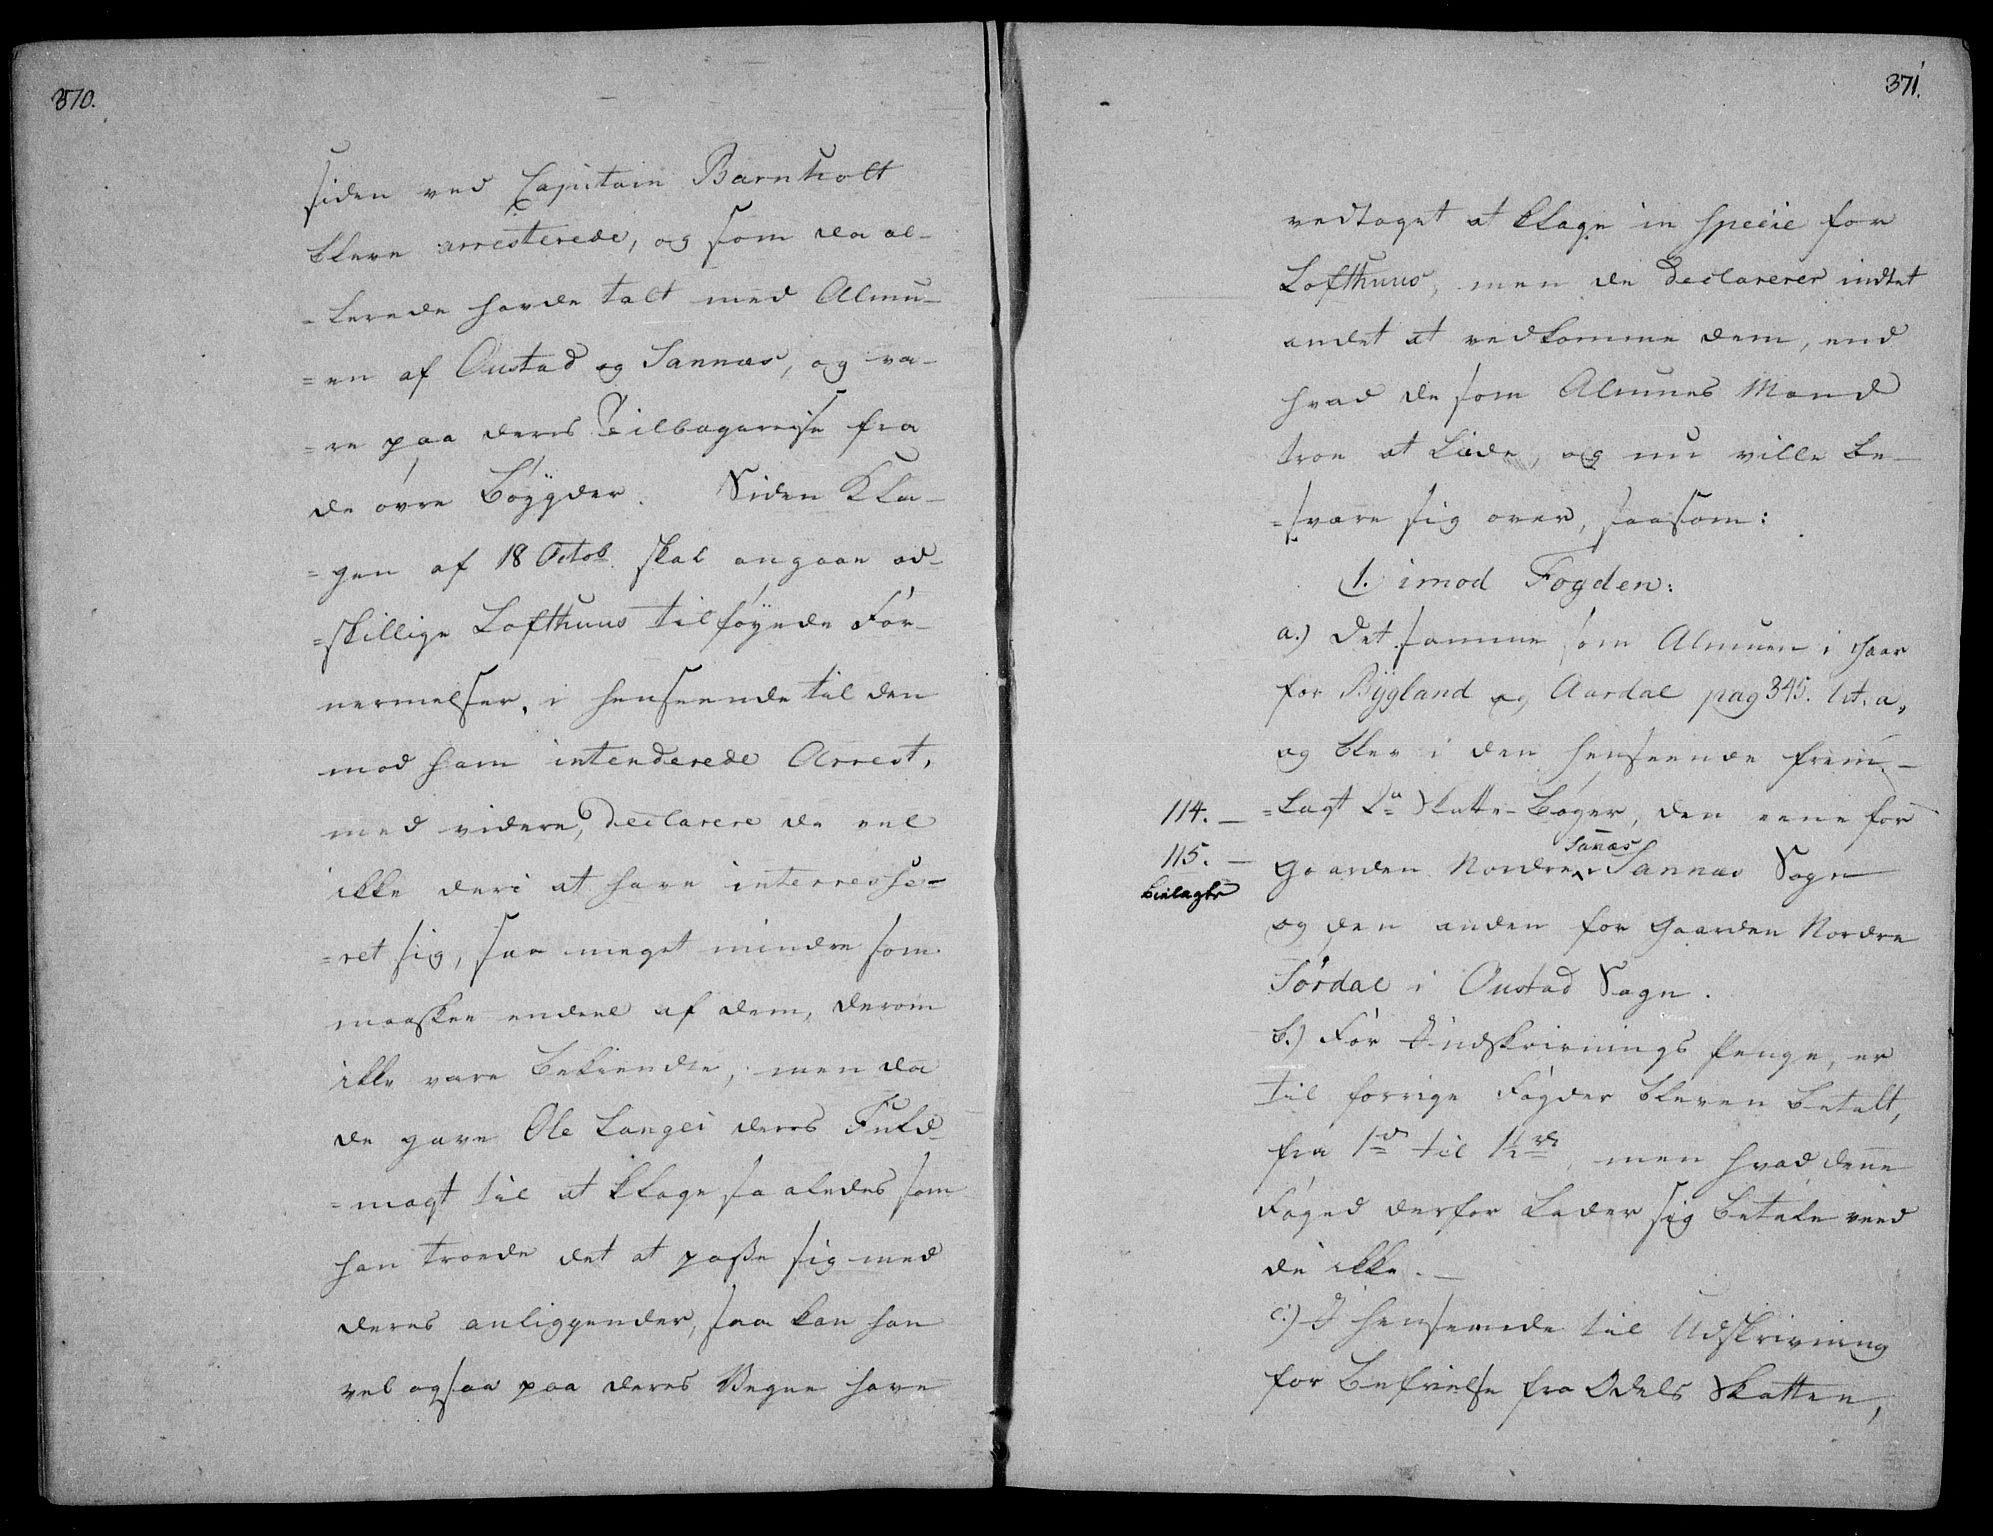 370.
siden ved Capitain Barnholt
bleve arresterede, og som da al-
-lerede havde talt med Almu-
=en af Oustad og Sannæs, og va-
=re paa deres Tilbagereise fra
de øvre Bøygder. Siden Kla-
=gen af 18 Octob. skal angaae ad-
=skillige Lofthuus tilføyede For-
nermelser, i henseende til den
mod ham intenderede Arrest,
med videre, declarere de vel
ikke deri at have interresse-
=ret sig, saa meget mindre som
maaskee endeel af dem, derom
ikke vare bekiendte, men da
de gave Ole Langei deres Fuld-
=magt til at klage saaledes som
han troede det at passe sig med
deres anliggender, saa kan han
vel ogsaa paa deres Vegne have
371.
vedtaget at klage in specie for
Lofthuus, men de declarerer indtet
andet at vedkomme dem, end
hvad de som Almues Mænd
troe at lide, og nu ville be-
=svære sig over, saasom:
1. imod Fogden:
a.) Det samme som Almuen i Haar
for Bygland og Aardal pag 345. lit. a,
og blev i den henseende frem-
114. — =lagt 2de Skatte-Bøger, den eene for
115. — Gaarden Nordre Sanæs i Sannæs Sogn
bielagte
og den anden for Gaarden Nordre
Sørdal i Oustad Sogn.
b.) For Indskrivnings Penge, er
til forrige Fogder bleven betalt,
fra 1d til 1½rd, men hvad denne
Foged derfor lader sig betale veed
de ikke.—
c.) I henseende til Udskrivning
for Befrielse fra Odels Skatten,